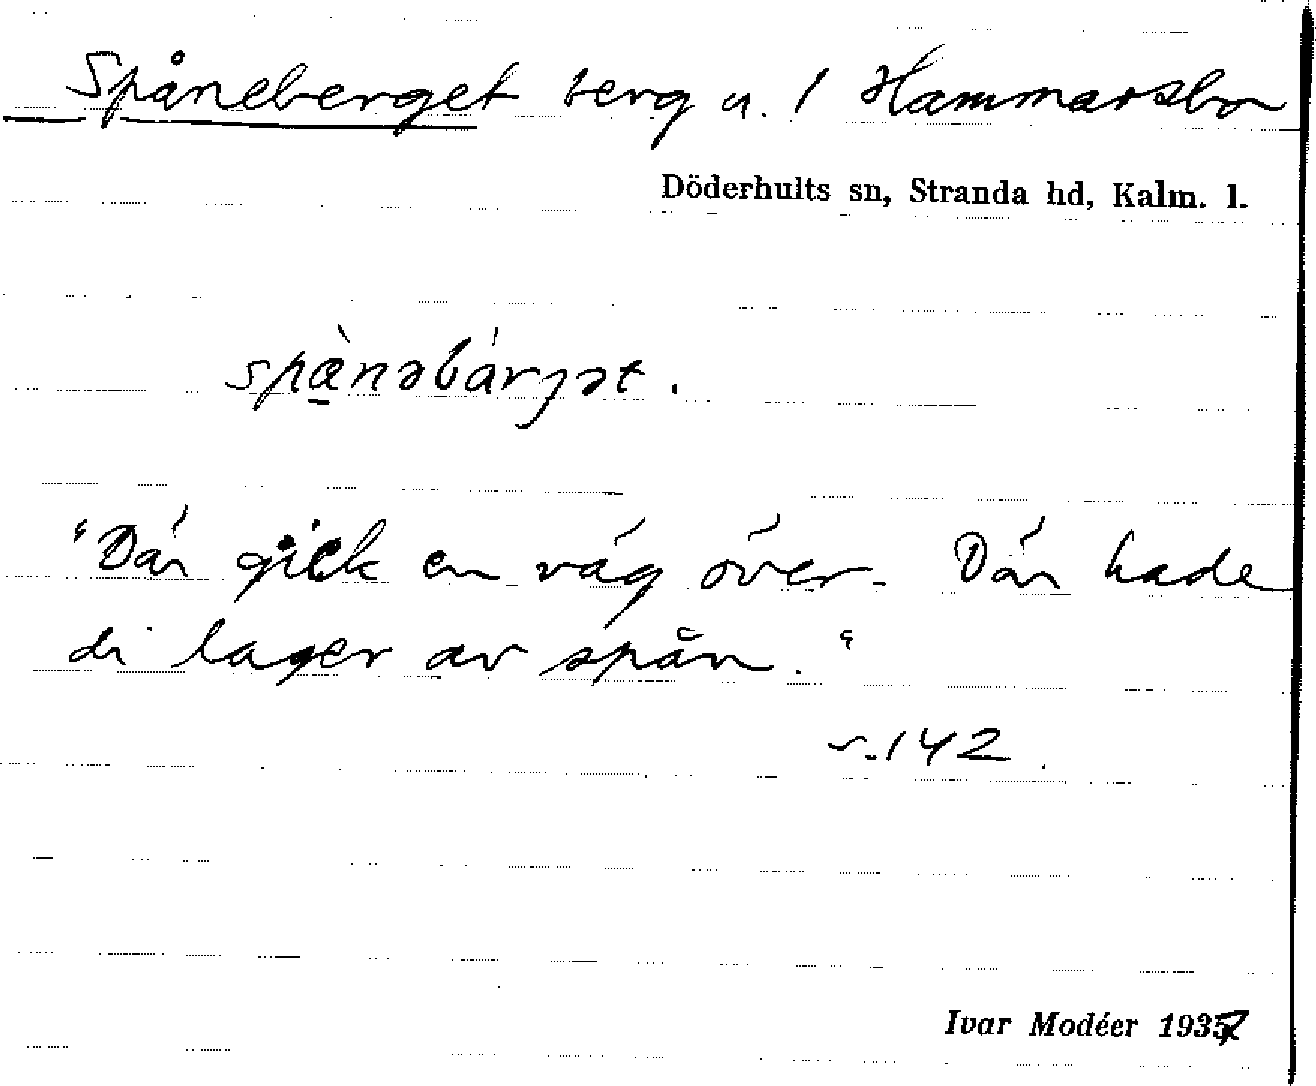 Spåneberget berg u. 1 Hammarsbo
Döderhults sn, Stranda hd, Kalm. l.
spæ̀nəbárjət.
"Där gick en väg över. Där hade
di lager av spån."
s. 142.
Ivar Modéer 1937